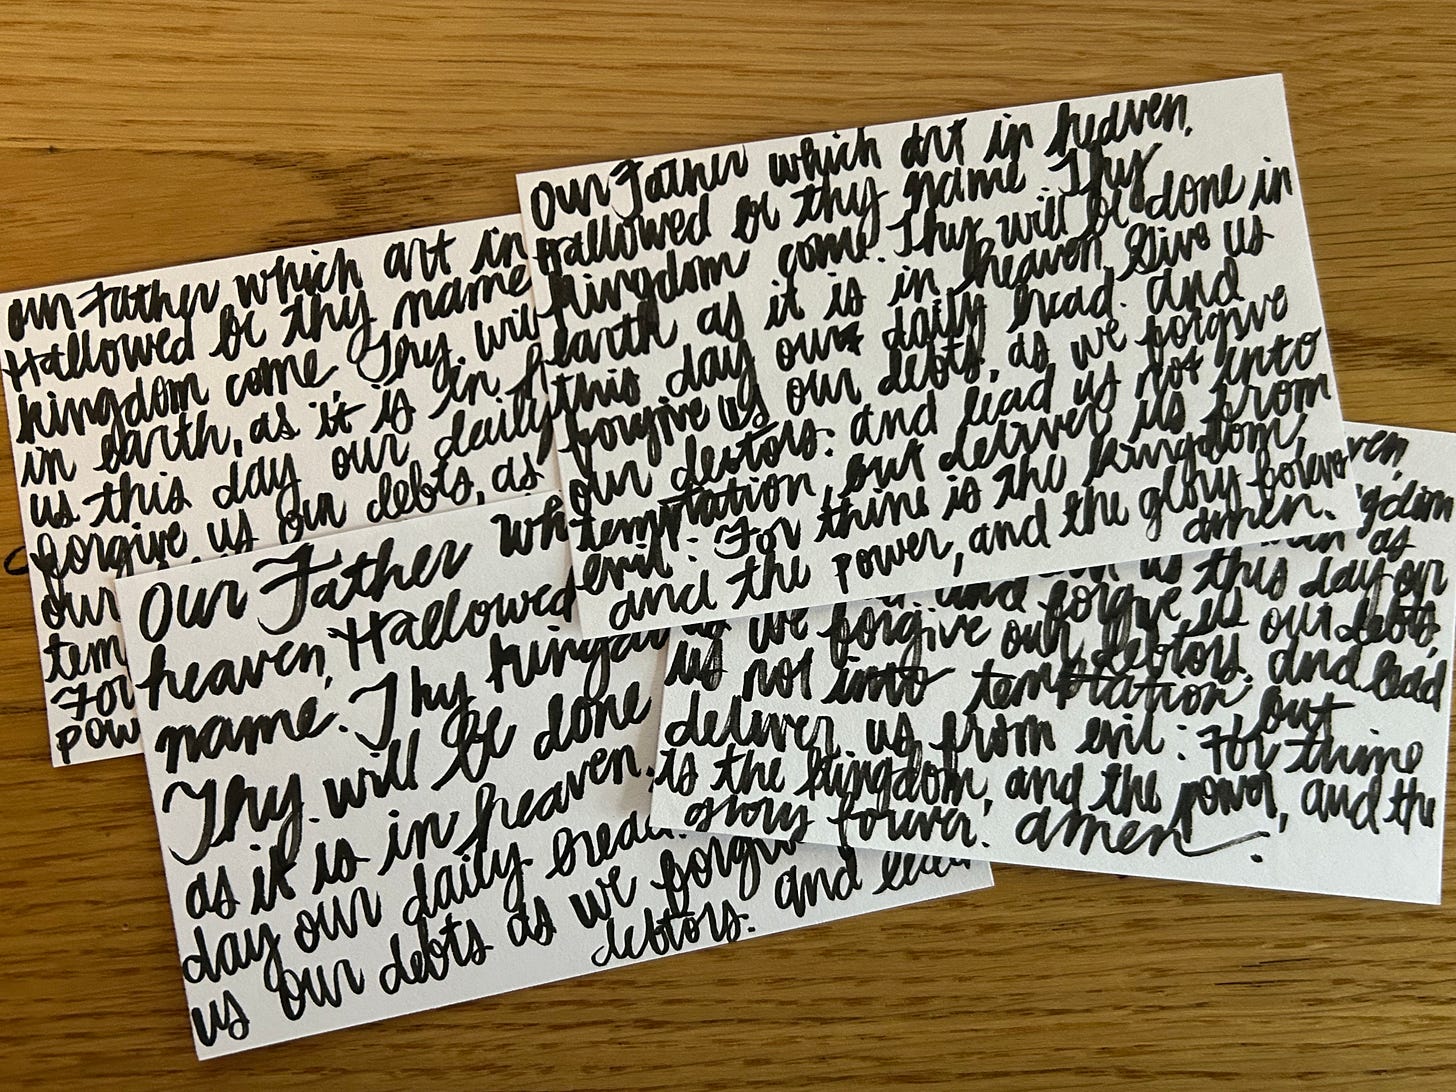 Our Father which art in
Hallowed be thy name
kingdom come Thy. wil
in earth, as it is in h
us this day our daily
forgive us our debts, as
our
tem
For
pow
Our Father which art in heaven,
Hallowed be thy name Thy
kingdom come. Thy will be done in
earth as it is in heaven. Give us
this day our daily bread. and
forgive us our debts, as we forgive
our debtors: and lead us not into
temptation, but deliver us from
evil: For thine is the kingdom,
and the power, and the glory forever
amen.
Our Father wh
heaven, Hallowed
name. Thy kingdo
Thy. will be done
as it is in heaven.
day our daily bread
us our debts as we forgiv
debtors: and lead
ven,
gdom
as
us this day our
and forgive us our debts,
as we forgive our debtors. and lead
us not into temptation, but
deliver us from evil: For thine
is the kingdom, and the power, and the
glory forever. amen.